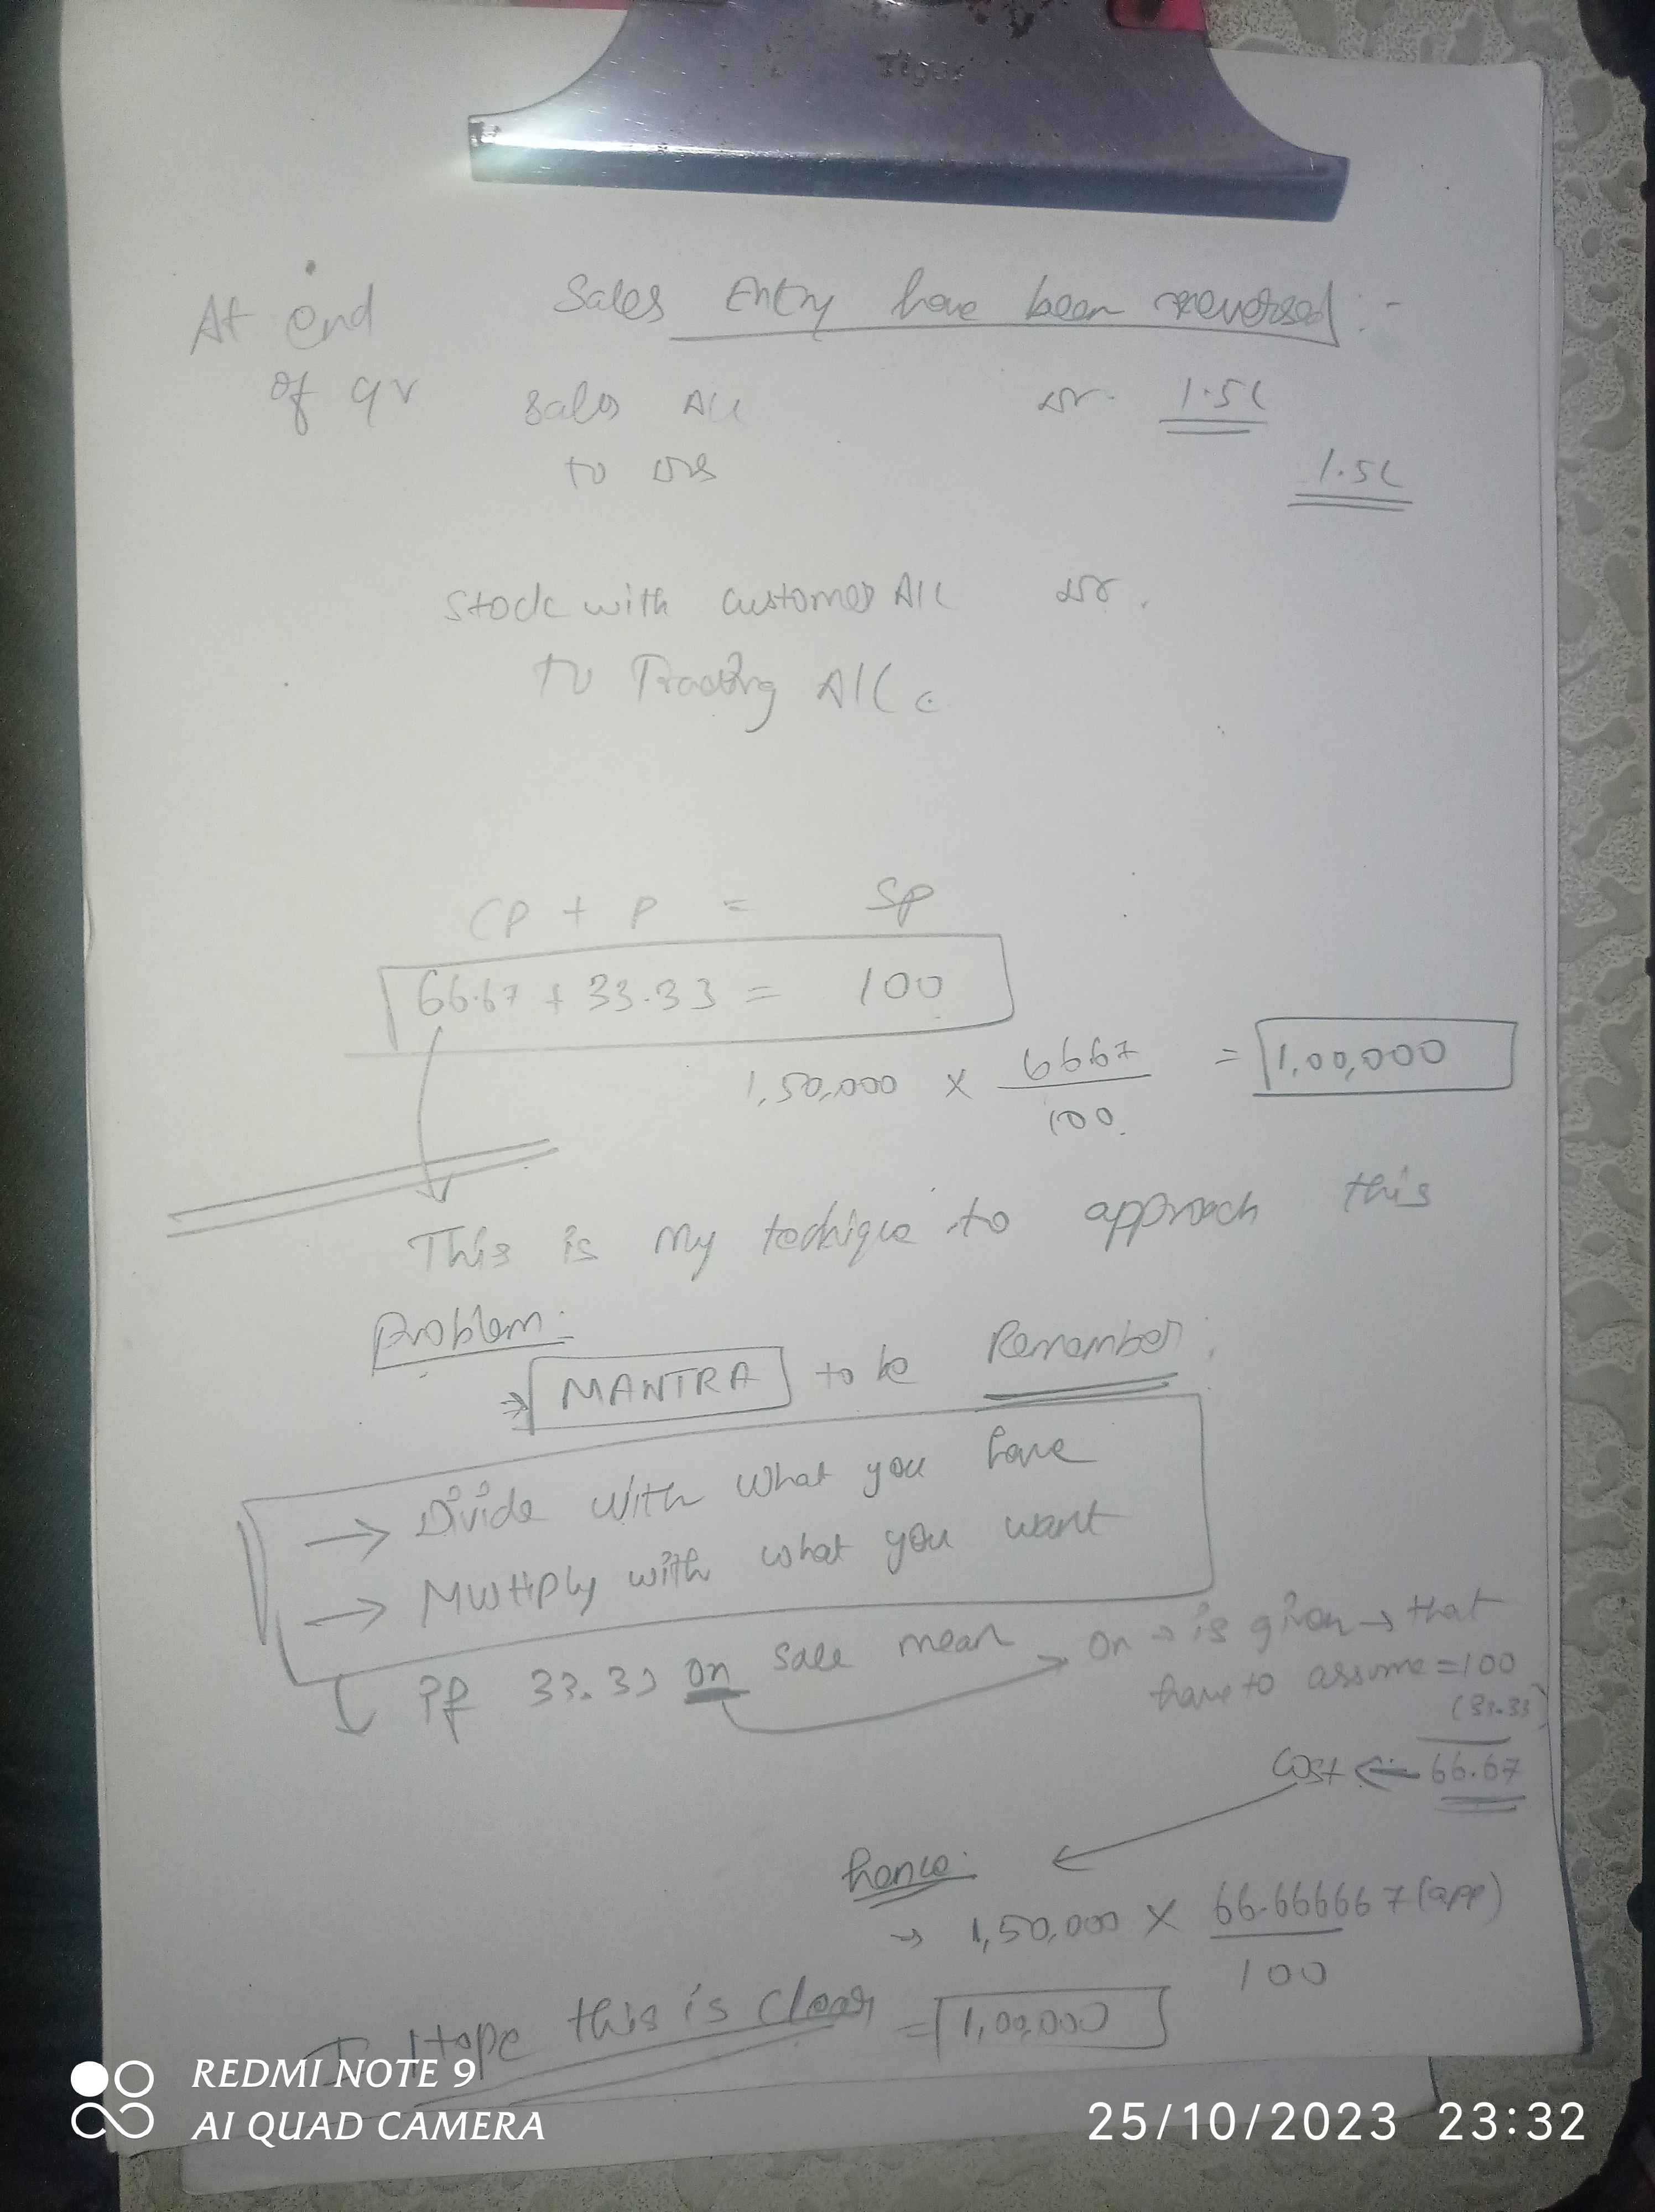 Tiger
At end Sales Entry have been reversed :-
of qr Sales A/c Dr. 1.5L
to Drs 1.5L
Stock with customer A/c Dr.
To Trading A/c
CP + P = SP
66.67 + 33.33 = 100
1,50,000 × 6667 = 1,00,000
100
This is my techique to approach this
problem:
⇒ MANTRA to be Remember:
→ Divide with what you have
→ Multiply with what you want
If 33.33 on sale mean on → is given → that
have to assume = 100
(33.33)
Cost ← 66.67
hence:
→ 1,50,000 × 66.666667 (app)
100
I Hope this is clear = 1,00,000
REDMI NOTE 9
AI QUAD CAMERA
25/10/2023 23:32